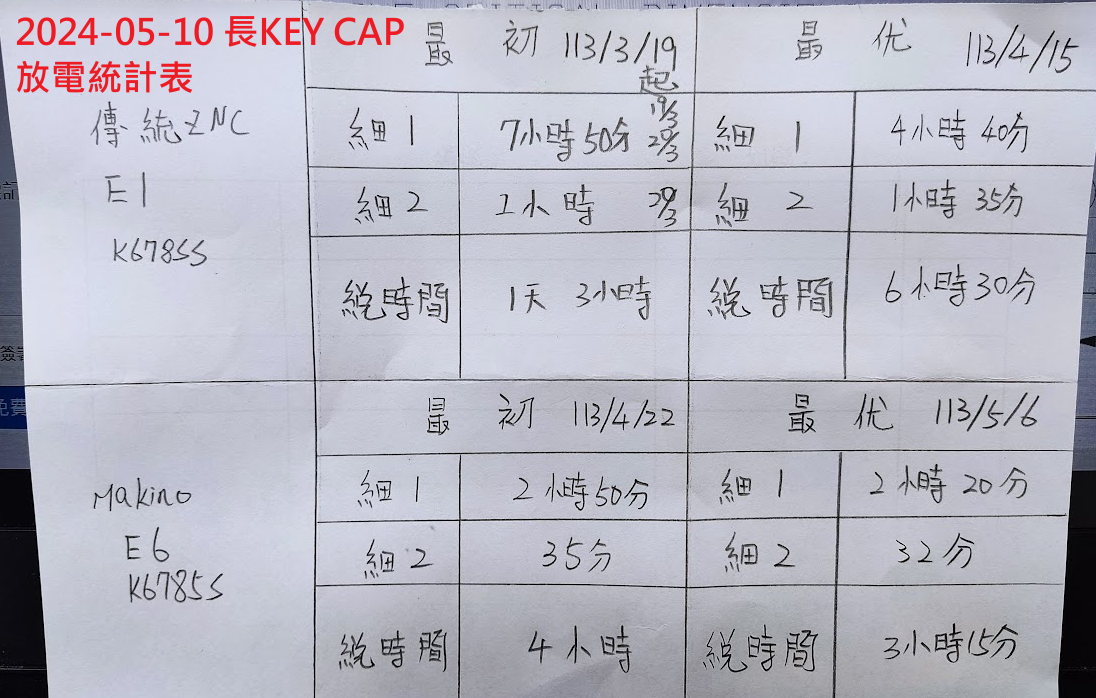 2024-05-10 長KEY CAP
放電統計表
傳統ZNC
E1
K6785S
最初 113/3/19
起
最优 113/4/15
細1 7小時50分 19/3
20/3
細1 4小時40分
細2 1小時 20/3
細2 1小時35分
総時間 1天 3小時
総時間 6小時30分
Makino
E6
K6785S
最初 113/4/22
最优 113/5/6
細1 2小時50分
細1 2小時20分
細2 35分
細2 32分
総時間 4小時
総時間 3小時15分